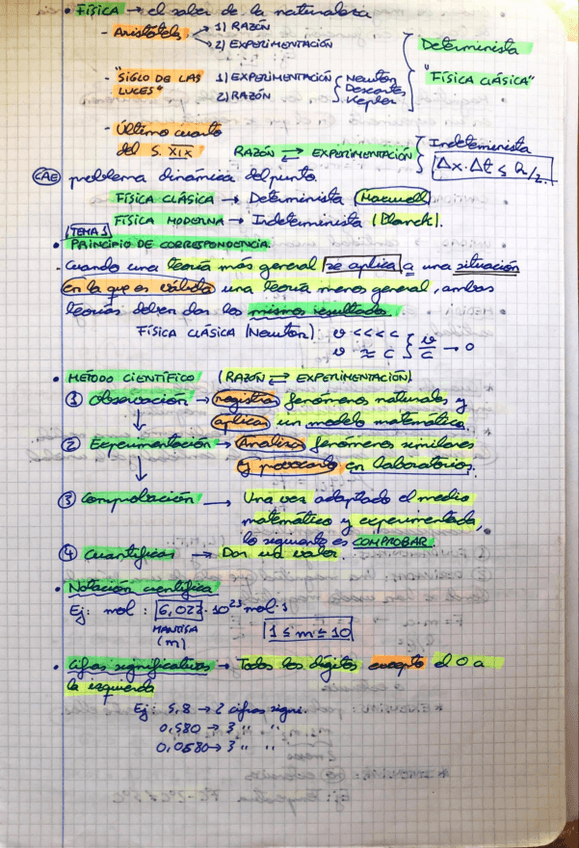 • FÍSICA → el saber de la naturaleza
- Aristóteles 1) RAZÓN
2) EXPERIMENTACIÓN
Determinista
"FÍSICA CLÁSICA"
- "SIGLO DE LAS LUCES" 1) EXPERIMENTACIÓN
2) RAZÓN
Newton
Descartes
Kepler
- Último cuarto
del S. XIX
RAZÓN ⇄ EXPERIMENTACIÓN
Indeterminista
Δx·Δt ≤ h/2..
CAE problema dinámica del punto
FÍSICA CLÁSICA → Determinista (Maxwell)
FÍSICA MODERNA → Indeterminista (Planck).
TEMA 1
• PRINCIPIO DE CORRESPONDENCIA.
- Cuando una teoría más general se aplica a una situación
en la que es válida una teoría menos general, ambas
teorías deben dar los mismos resultados.
FÍSICA CLÁSICA (Newton) v <<<< c
v ≈ c } v/c → 0
• MÉTODO CIENTÍFICO (RAZÓN ⇄ EXPERIMENTACIÓN)
① Observación → registra fenómenos naturales y
aplicas un modelo matemático.
② Experimentación → Analiza fenómenos similares
y en laboratorios.
③ Comprobación → Una vez adaptado el medio
matemático y experimentada,
lo siguiente es COMPROBAR.
④ Cuantificas → Dar un valor.
• Notación científica
Ej: mol : 6,023·10²³ mol⁻¹
MANTISA
(m)
1 ≤ m ≤ 10
• Cifras significativas → Todos los dígitos excepto el 0 a
la izquierda
Ej: 5,8 → 2 cifras signi.
0,580 → 3 " "
0,0580 → 3 " "